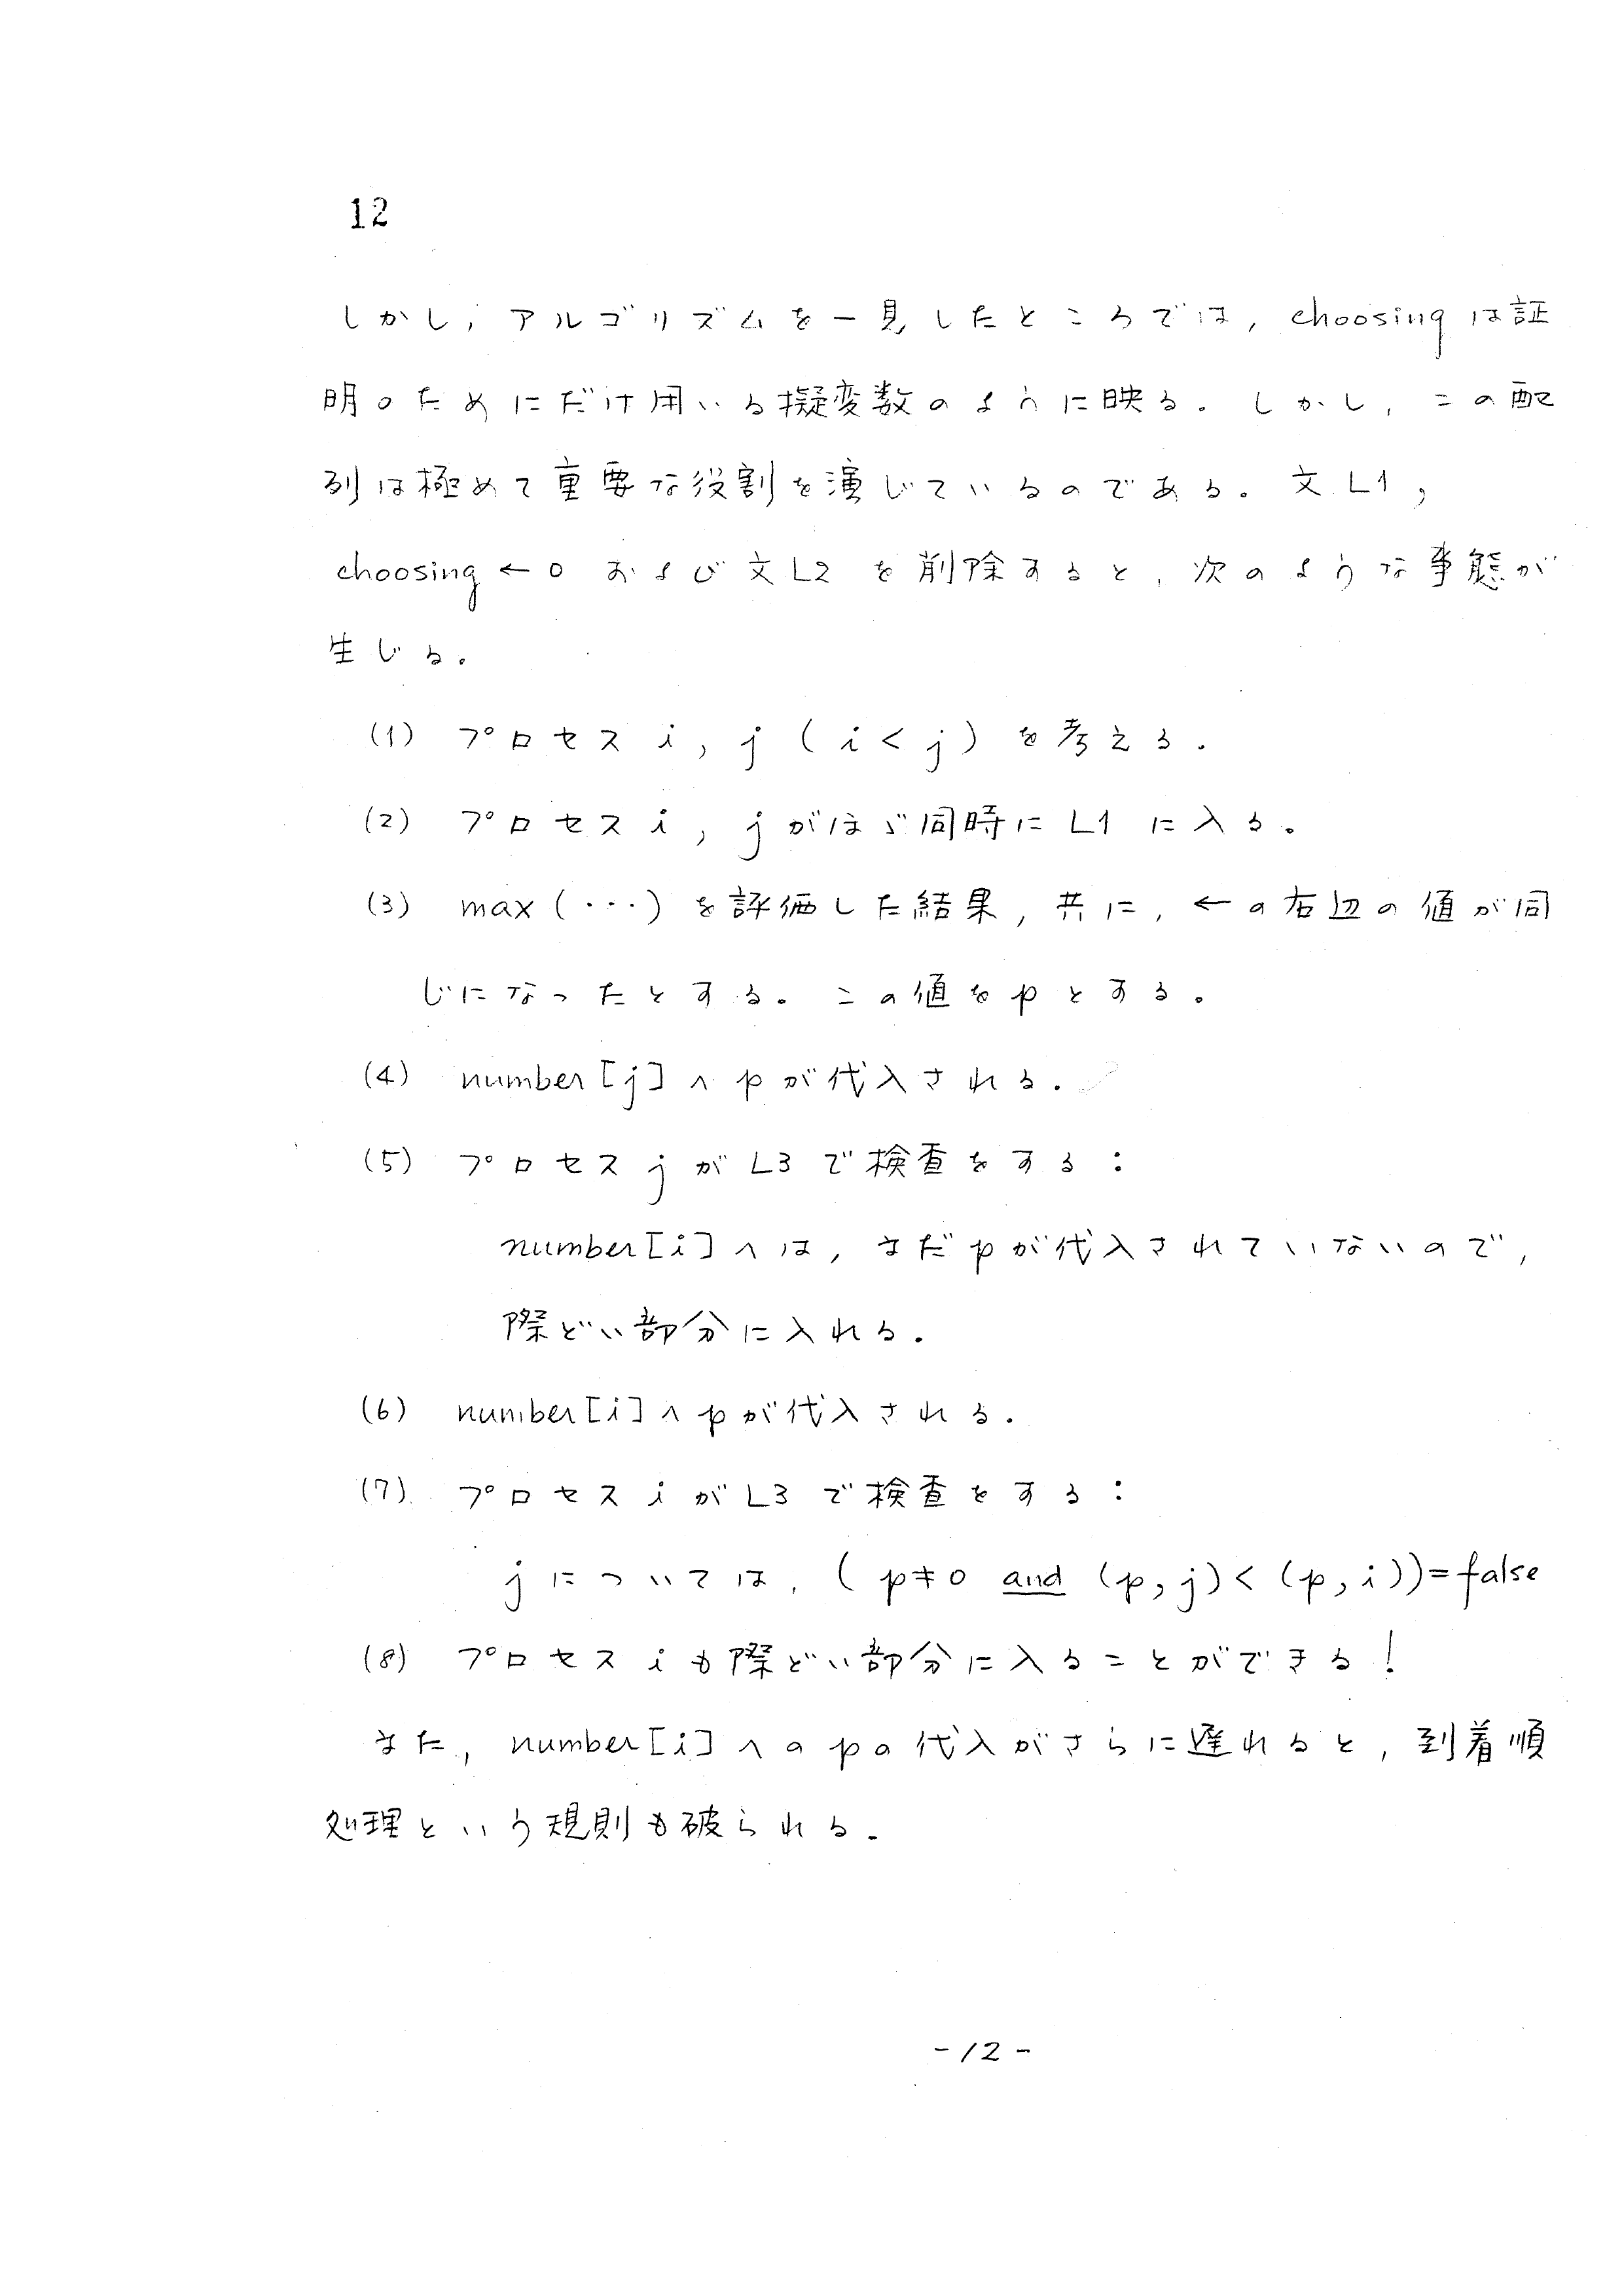 12
しかし, アルゴリズムを一見したところでは, choosing は証
明のためにだけ用いる擬変数のように映る. しかし, この配
列は極めて重要な役割を演じているのである. 文 L1,
choosing ← 0 および文 L2 を削除すると, 次のような事態が
生じる.
(1) プロセス i, j ( i < j ) を考える.
(2) プロセス i, j がほゞ同時に L1 に入る.
(3) max (・・・) を評価した結果, 共に, ← の右辺の値が同
じになったとする. この値を p とする.
(4) number [j] へ p が代入される.
(5) プロセス j が L3 で検査をする :
number [i] へは, まだ p が代入されていないので,
際どい部分に入れる.
(6) number [i] へ p が代入される.
(7) プロセス i が L3 で検査をする :
j については, ( p ≠ 0 and (p, j) < (p, i)) = false
(8) プロセス i も際どい部分に入ることができる !
また, number [i] への p の代入がさらに遅れると, 到着順
処理という規則も破られる.
- 12 -